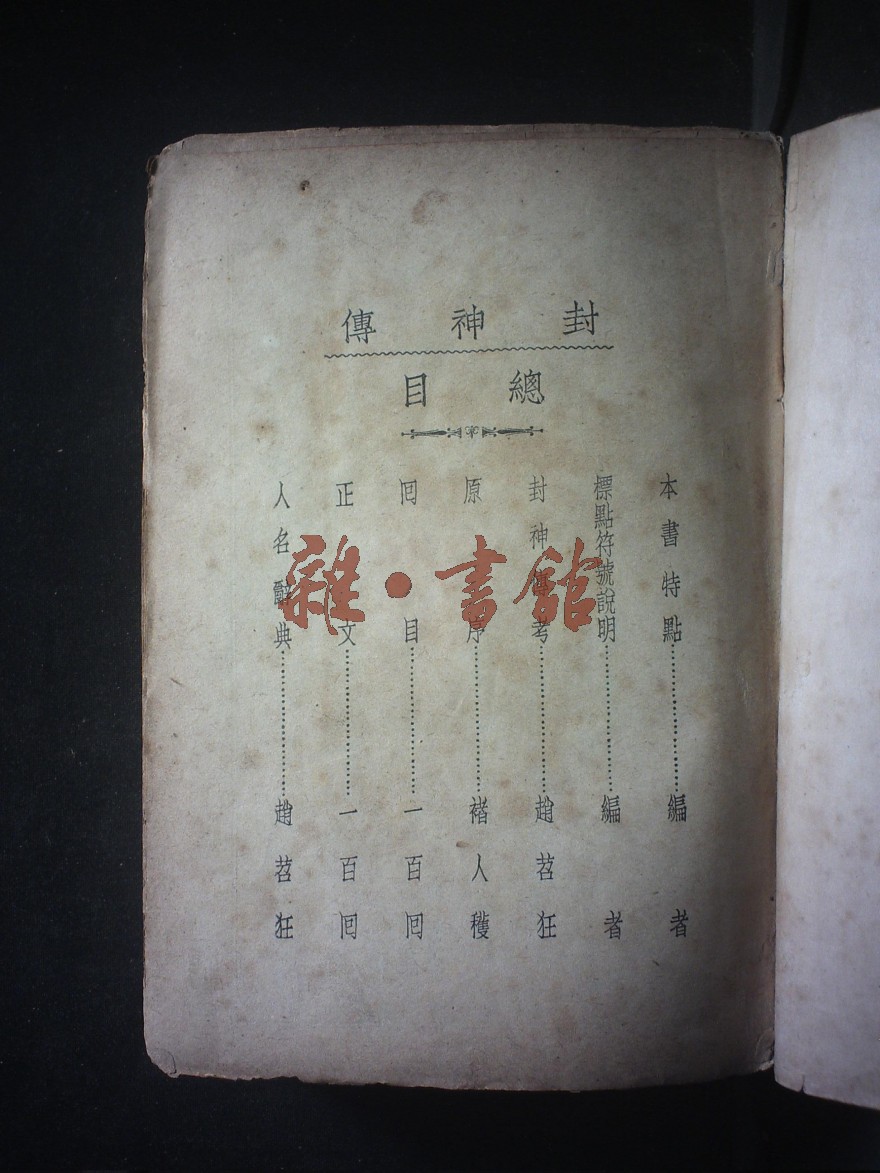 封神傳
總目
本書特點……………………編者
標點符號說明……………………編者
封神傳考……………………趙苕狂
原序……………………褚人穫
囘目……………………一百囘
正文……………………一百囘
人名辭典……………………趙苕狂
雜·書館